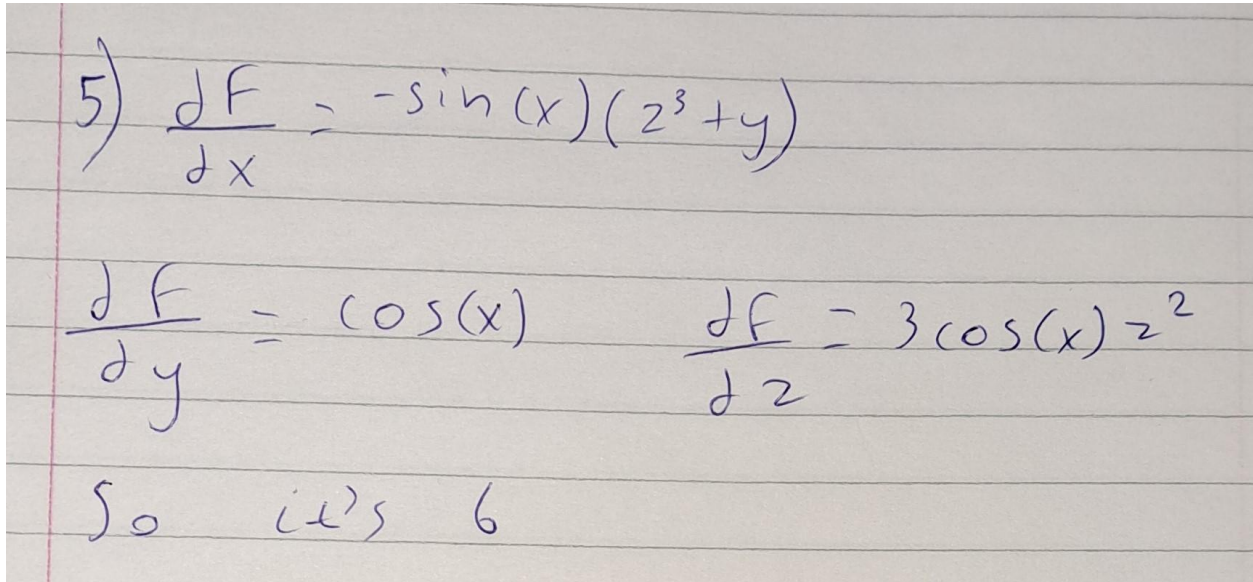 5) dF/dx = -sin(x)(z³+y)
dF/dy = cos(x) dF/dz = 3cos(x)z²
So it's 6